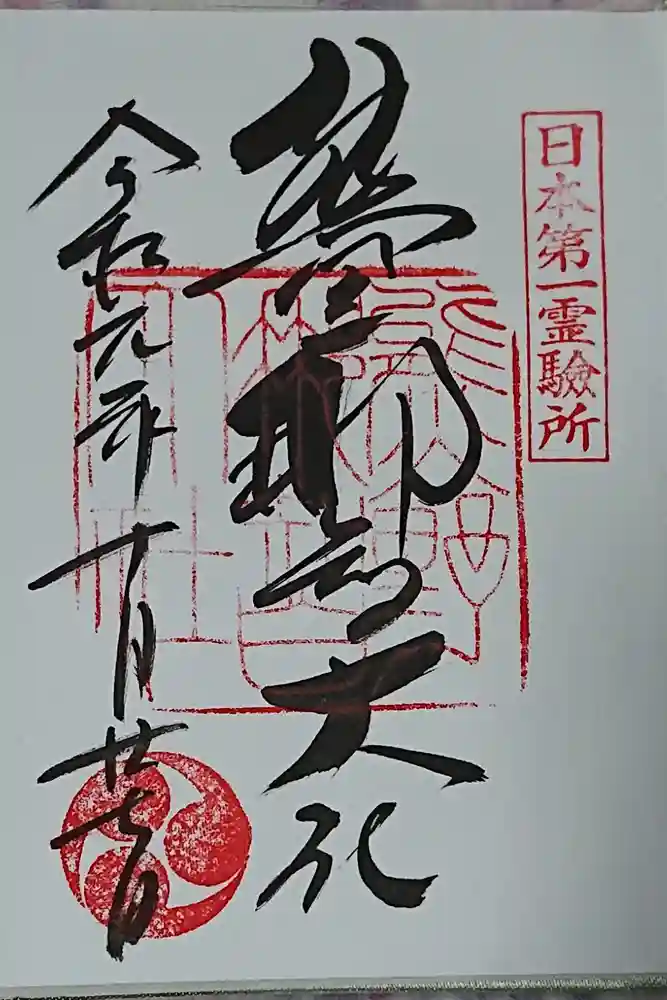 日本第一霊験所
熊野那智大社
令和元年十月廿七日